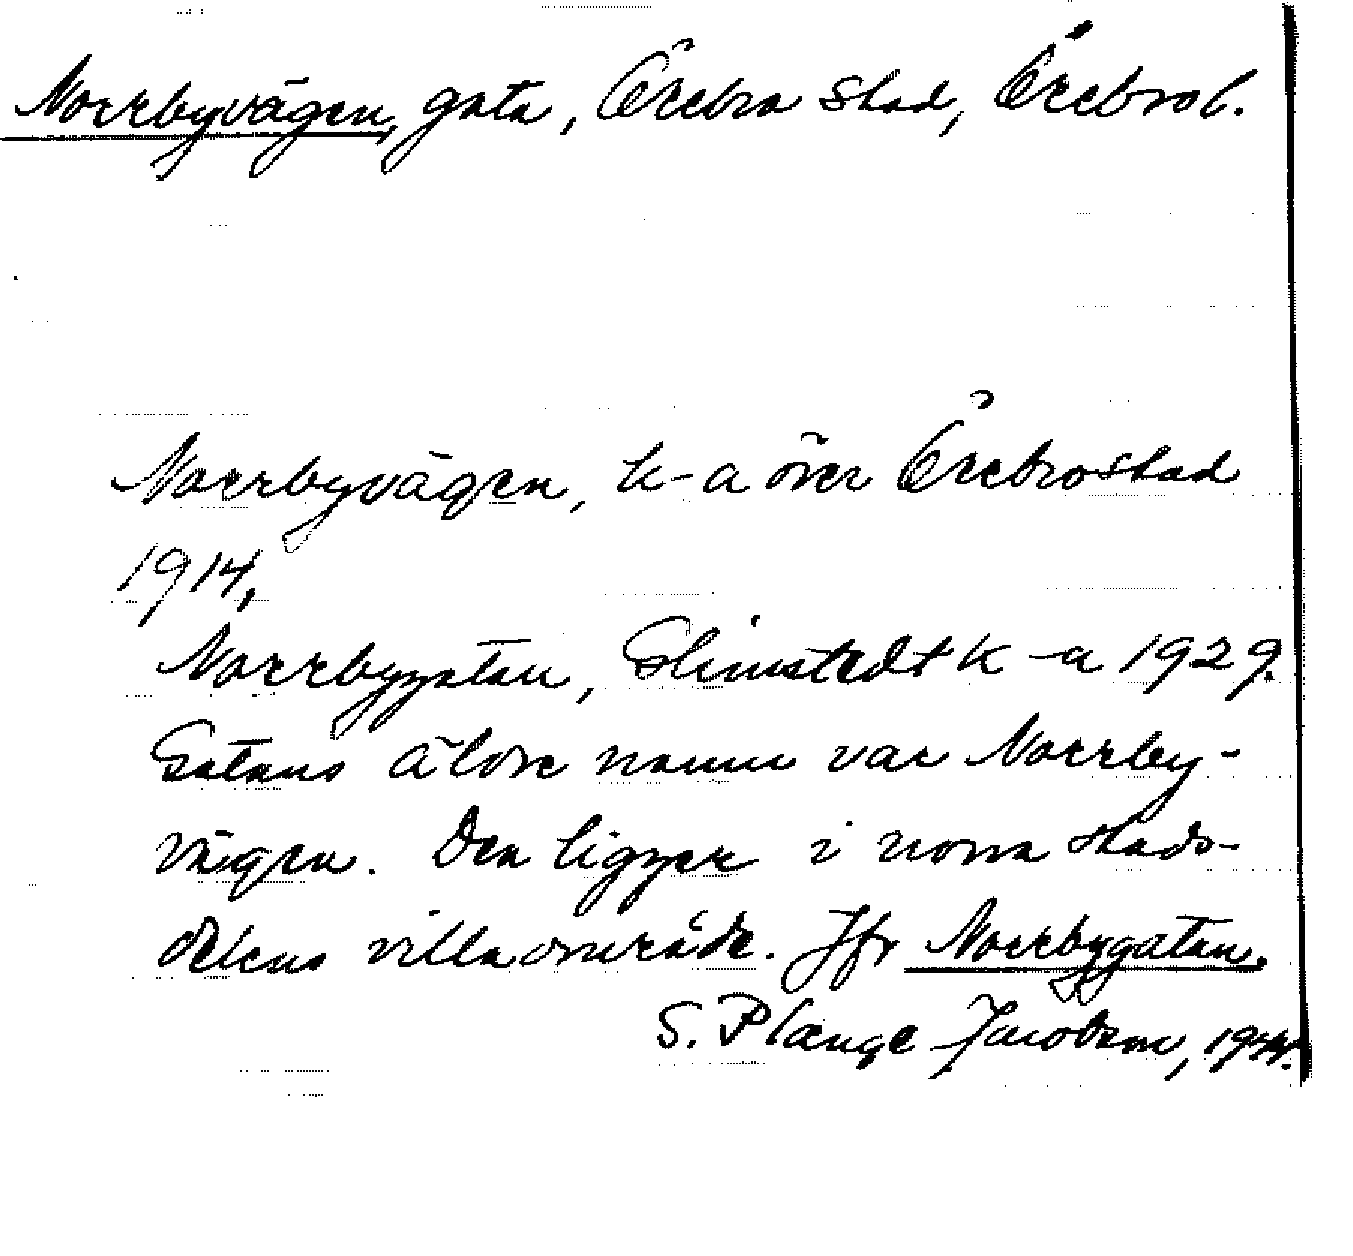 Norrbyvägen, gata, Örebro stad, Örebro l.
Norrbyvägen, k-a över Örebro stad
1914,
Norrbygatan, Glimstedt k-a 1929.
Gatans äldre namn var Norrby-
vägen. Den ligger i norra stads-
delens villaområde. Jfr Norrbygatan.
S. Plænge Jacobson, 1944.